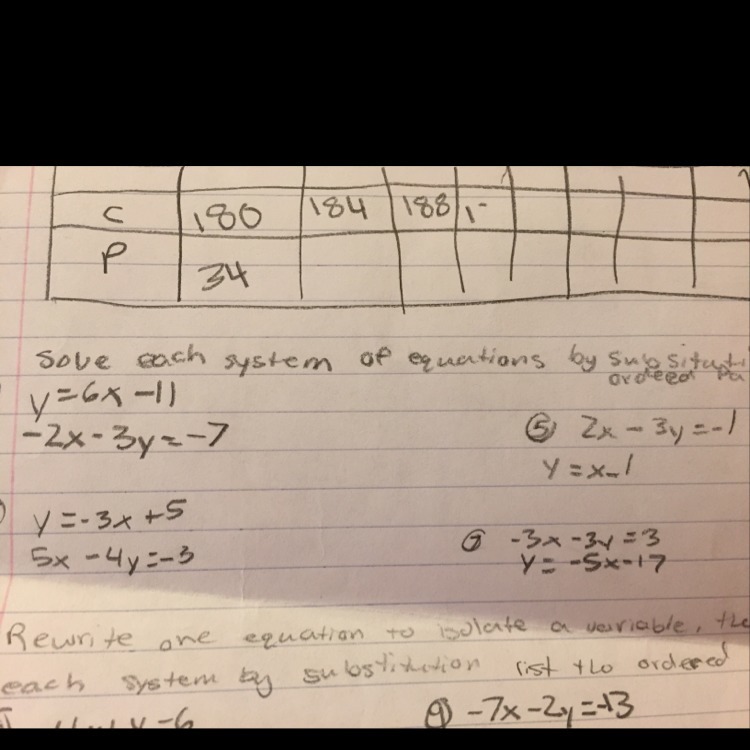 C 180 184 188
P 34
Solve each system of equations by
ordered
y=6x-11
-2x-3y=-7
⑤ 2x-3y=-1
y=x-1
y=-3x+5
5x-4y=-3
⑦ -3x-3y=3
y=-5x-17
Rewrite one equation to isolate a variable,
each system by substitution list the ordered
⑨ -7x-2y=-13